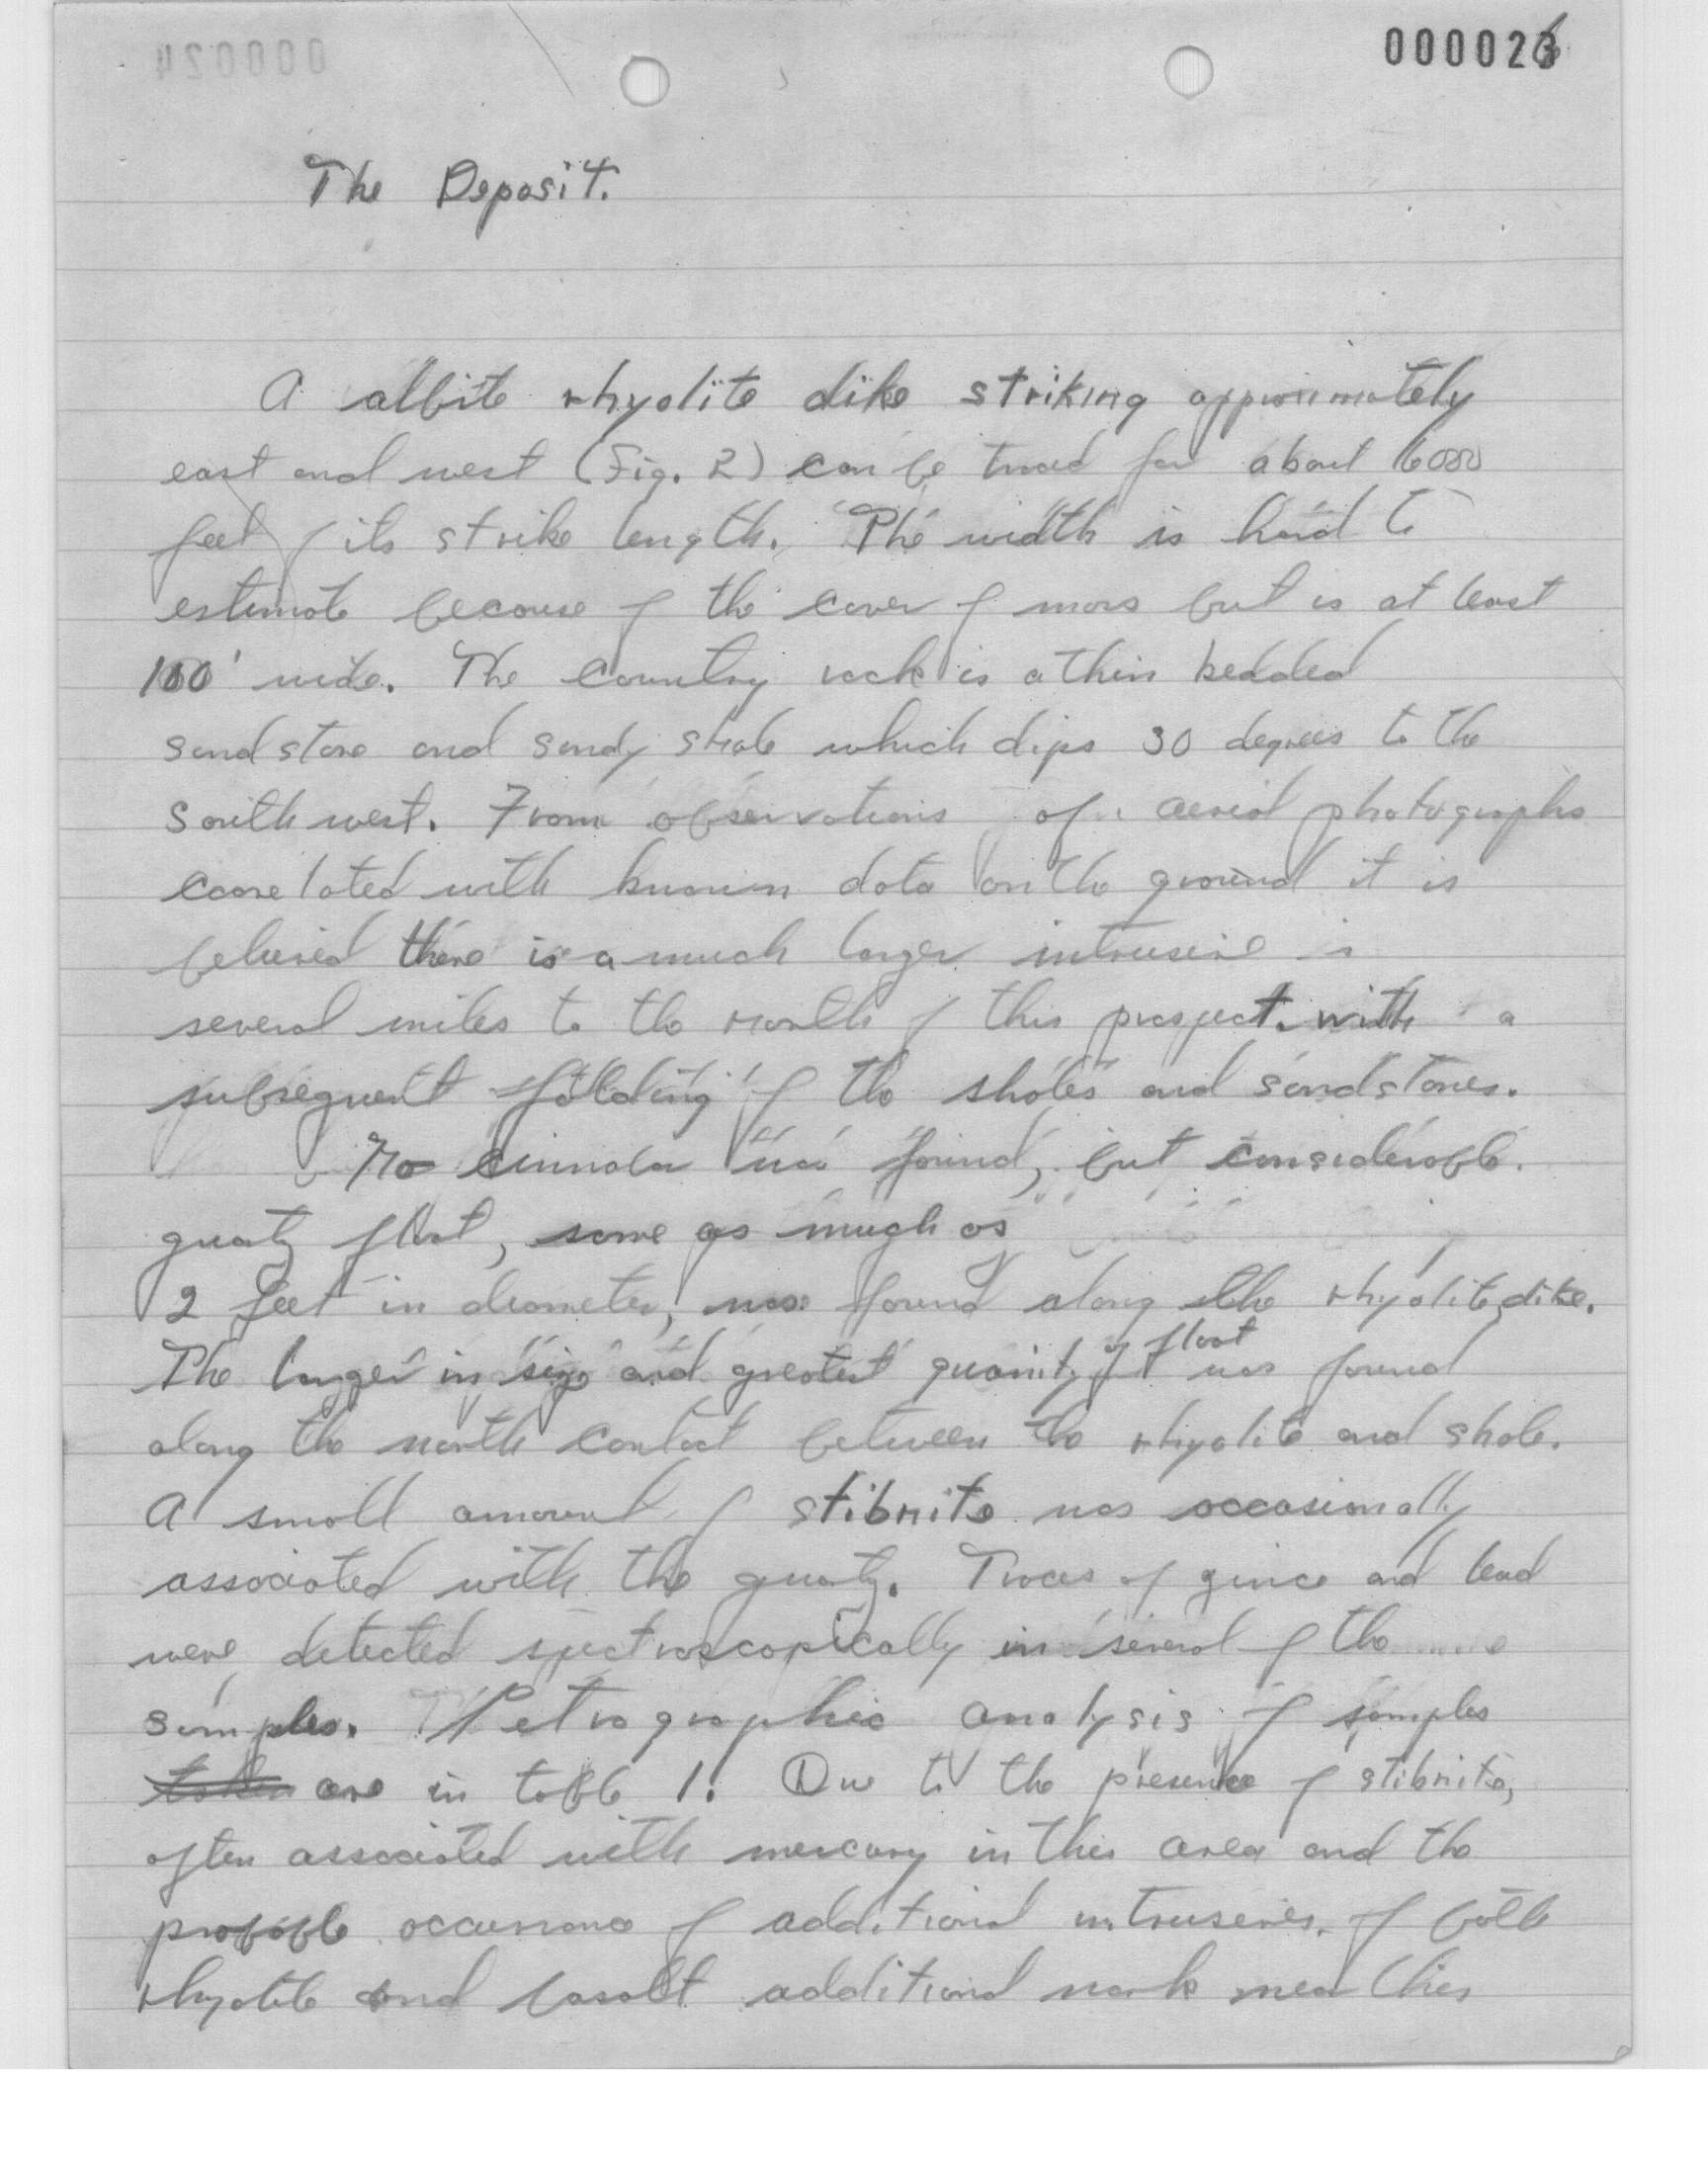 000026
000024
The Deposit.
A albite rhyolite dike striking approximately
east and west (Fig. 2) can be traced for about 6000
feet of its strike length. The width is hard to
estimate because of the cover of moss but is at least
100' wide. The country rock is a thin bedded
sandstone and sandy shale which dips 30 degrees to the
southwest. From observations of aerial photographs
coorelated with known data on the ground it is
belived there is a much larger intrusive
several miles to the north of this prospect with a
subsequent folding of the shales and sandstones.
No cinnabar was found, but considerable
quartz float, some as much as
2 feet in diameter, was found along the rhyolite dike.
The larger in size and greatest quanity of float was found
along the north contact between the rhyolite and shale.
A small amount of stibnite was occasionally
associated with the quartz. Traces of zinc and lead
were detected spectroscopically in several of the
samples. Petrographic analysis of samples
taken are in table 1. Due to the presence of stibnite,
often associated with mercury in this area and the
probable occurrance of additional intrusives of both
rhyolite and basalt additional work near this